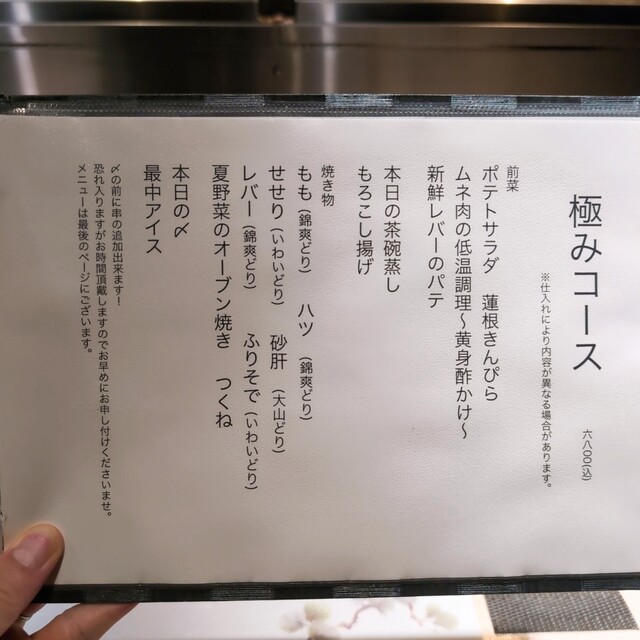 極みコース
六八〇〇(込)
※仕入れにより内容が異なる場合があります。
前菜
ポテトサラダ　蓮根きんぴら
ムネ肉の低温調理〜黄身酢かけ〜
新鮮レバーのパテ
本日の茶碗蒸し
もろこし揚げ
焼き物
もも(錦爽どり)　ハツ(錦爽どり)
せせり(いわいどり)　砂肝(大山どり)
レバー(錦爽どり)　ふりそで(いわいどり)
夏野菜のオーブン焼き　つくね
本日の〆
最中アイス
〆の前に串の追加出来ます！
恐れ入りますがお時間頂戴しますのでお早めにお申し付けくださいませ。
メニューは最後のページにございます。